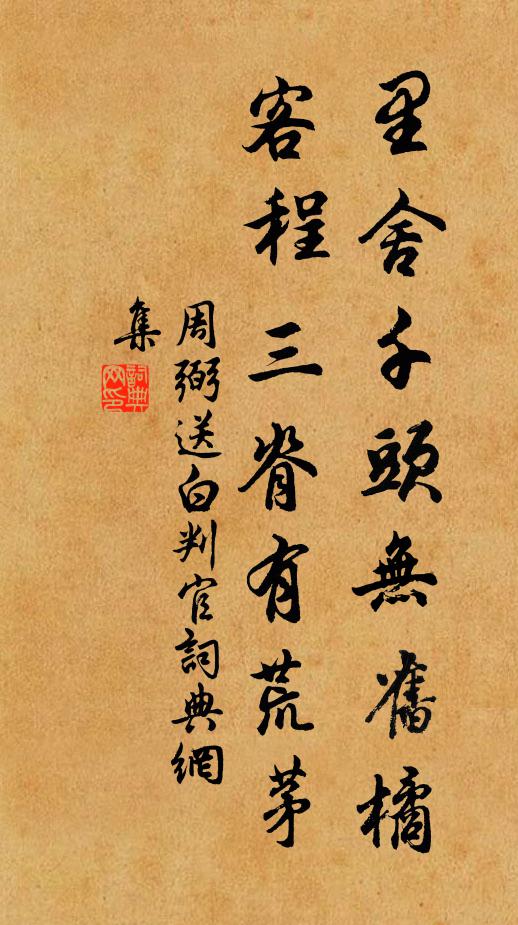 里舍千頭無舊橘
客程三脊有荒茅
周弼送白判官詞典網
集
詞典
网印